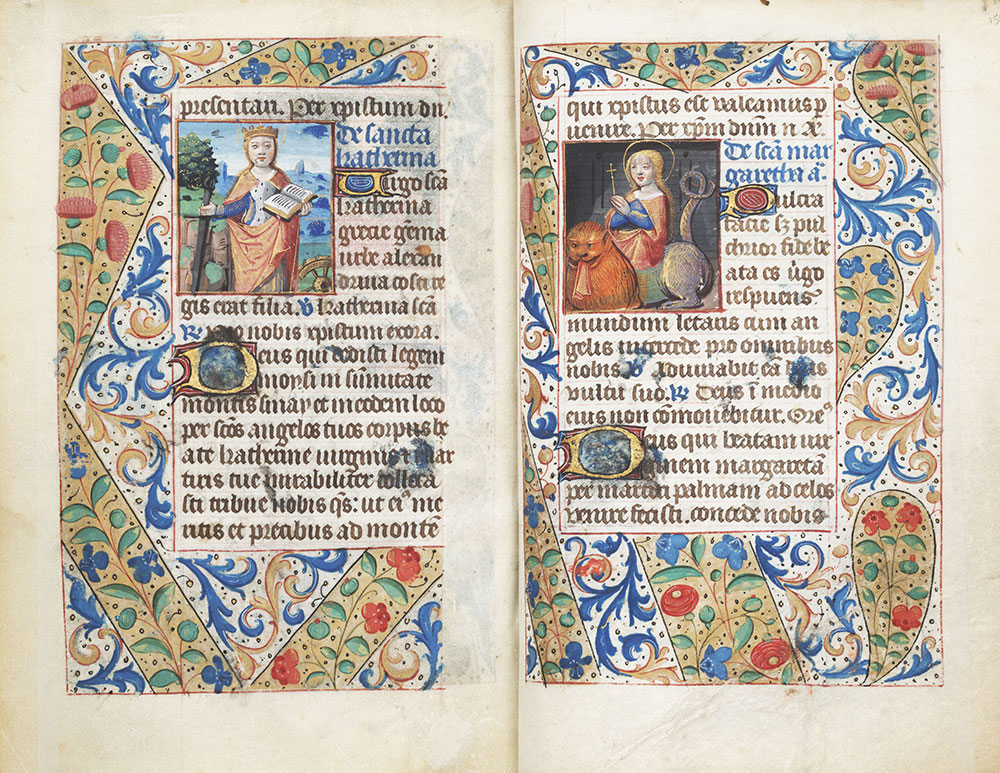 presentari. Per xpistum dn̄.
De sancta
katherina
Uirgo scā
katherina
grecie gēma
urbe alexan
drina costi re
gis erat filia. V katherina scā
R nobis xpistum exora.
Deus qui dedisti legem
moysi in sūmitate
montis sinay et in eodem loco
per scōs angelos tuos corpus be
ate katherine uirginis mar
turis tue mirabiliter
sti tribue nobis qs: ut eiꝰ me
ritis et precibus ad monte
qui xpistus est ualeamus p
uenire. Per xpm dnm n
De scā mar
garetha ā
Pulcra
facie s pul
chrior fide be
ata es uigo
respuens
mundum letaris cum an
gelis intercede pro omnibus
nobis V Adiuuabit eā
uultu suo. R Deus ī medio
eius non cōmouebitur. Ore
Deus qui beatam uir
ginem margaretā
per martiri palmam ad celos
uenire fecisti. concede nobis